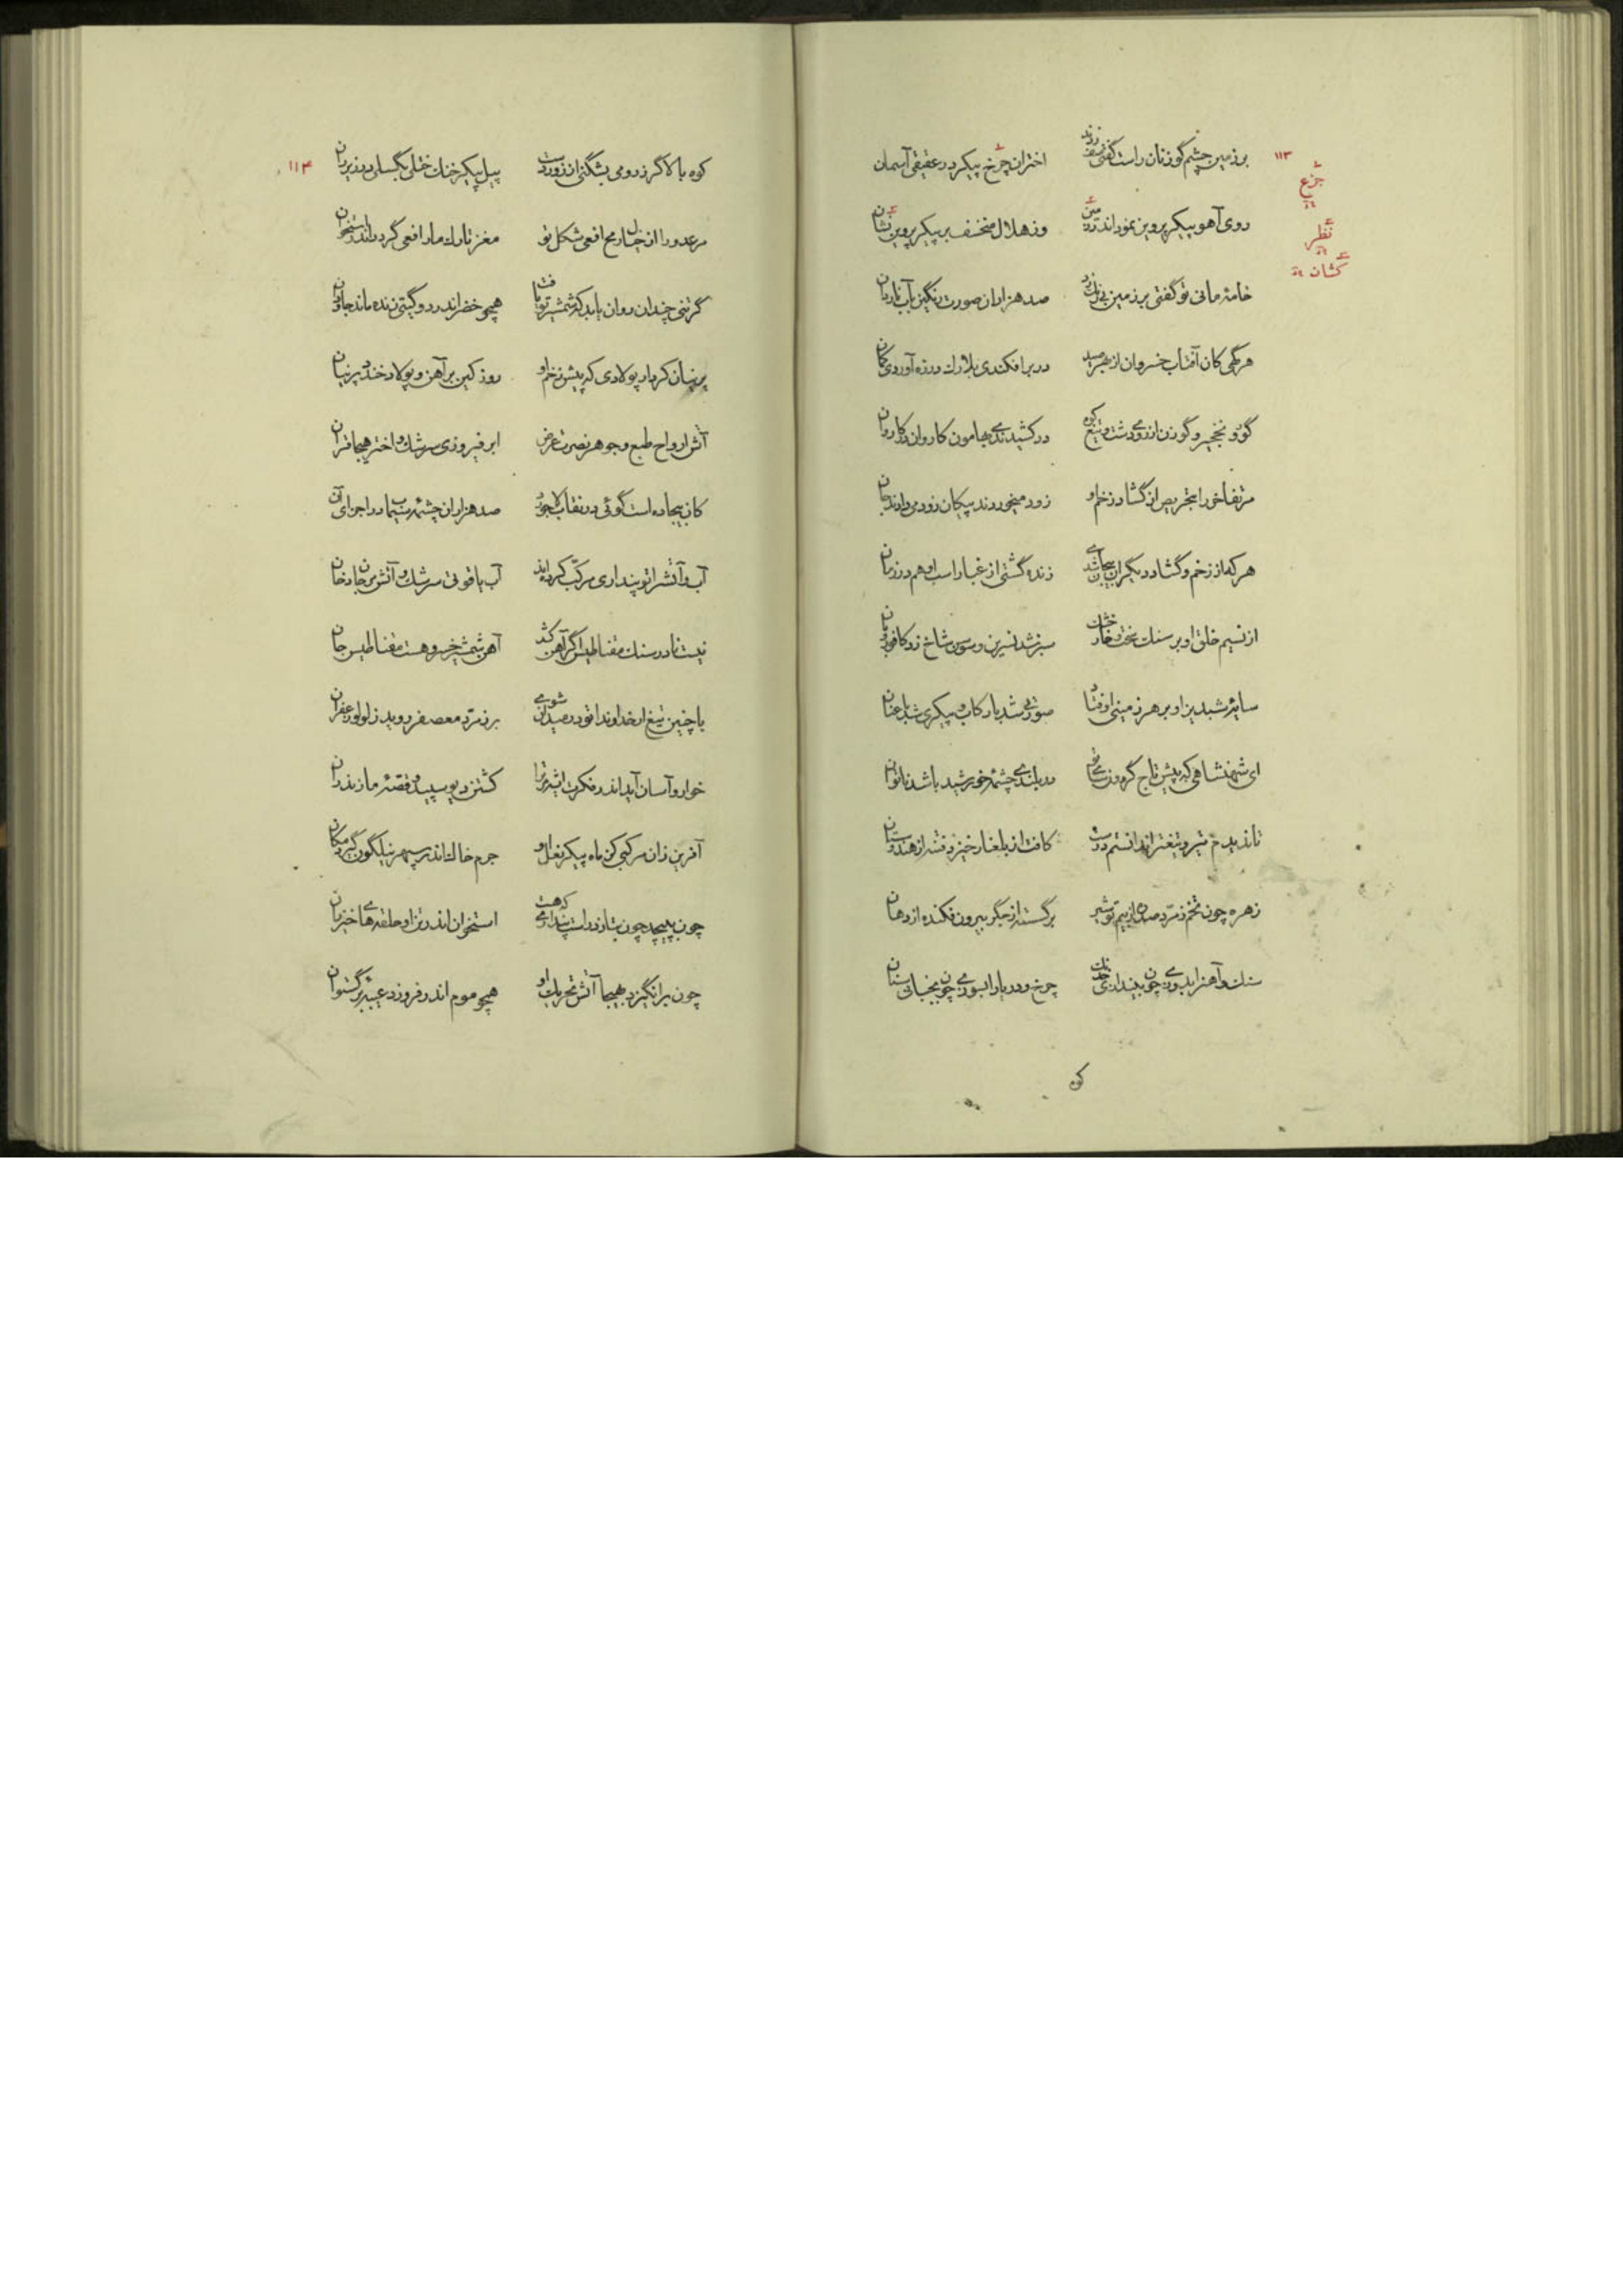 ۱۱۳
برزمین چشم گوزنان راست گفتی اختران چرخ پیکر در عقیقی آسمان
جزع
روی آهو پیکر پروین نمود اندر زمین وز هلال منخسف بر پیکر پروین نشان
نظر
کشان
خامهٔ مانی تو گفتی بر زمین صد هزاران صورت رنگین بآب ناردان
هر گهی کان آفتاب خسروان از بهر صید در بر افکندی پلارك در زه آوردی کمان
گور و نخجیر و گوزن از روی دشت و تیغ کوه در کشیدندی بهامون کاروان در کاروان
از گشاد زخم او زود میخوردند پیکان زود می دادند جان
هر که از زخم و گشاد دیگران بیجان شدی زنده گشتی از غبار اسب او هم در زمان
از نسیم خلق او بر سنك سخت و خار خشك سبز شد نسرین و سوسن شاخ زد کافور و بان
سایهٔ شبدیز او بر هر زمینی اوفتاد صورتی شد با رکاب و پیکری شد با عنان
ای شهنشاهی که پیش تاج گوهر در بلندی چشمهٔ خورشید باشد ناتوان
تا ندیدم تیر و تیغت را ندانستم درست کافت از بلغار خیزد فتنه از هندوستان
زهره چون تخم زمرد از بیم تو شیر بر گسسته از جگر بیرون فکنده از دهان
سنك و آهن را بدوزی چون بیندازی خدنك چرخ و دریا را بسوزی چون بجنبانی سنان
کوه
۱۱۴
کوه بالا گرز رومی بشکنی از زور دست پیل پیکر خنك ختلی بگسلی در زیر ران
مر عدو را از خیال رمح افعی شکل تو مغز تارك مار افعی گردد اندر استخوان
گر تنی چندان روان یابد که شمشیر تو یافت همچو خضر اندر دو گیتی زنده ماند جاودان
پرنیان کردار پولادی که پیش زخم او روز کین بر آهن و پولاد خندد پرنیان
آتش ارواح طبع و جوهر نصرت عرض ابر فیروزی سرشك و اختر هیجا قران
کان بیجاده است گوئی در نقاب لاجورد صد هزاران چشمهٔ سیماب در اجزای آن
آب و آتش را تو پنداری مرکب کرده اند آب یاقوتی سرشك و آتش مرجان دخان
نیست نادر سنك مقناطیس اگر آهن کشد آهن شمشیر خسرو هست مقناطیس جان
با چنین تیغ ار خداوندا تو در میدان شوی بر زمرد معصفر روید ز لولو زعفران
خوار و آسان آید اندر فکرت کشتن دیو سپید و قصهٔ مازندران
آفرین زان مرکبی کز ماه پیکر نعل او جرم خاك اندر سپهر نیلگون گیرد مکان
چون بپیچد چون بتازد راست پنداری که هست استخوان اندر تن او حلقه های خیزران
چون برانگیزد بهیجا آتش تحریك او همچو موم اندر فروزد برگستوان